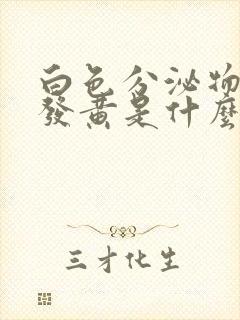 白色分泌物
發黃是什麼
三才化生